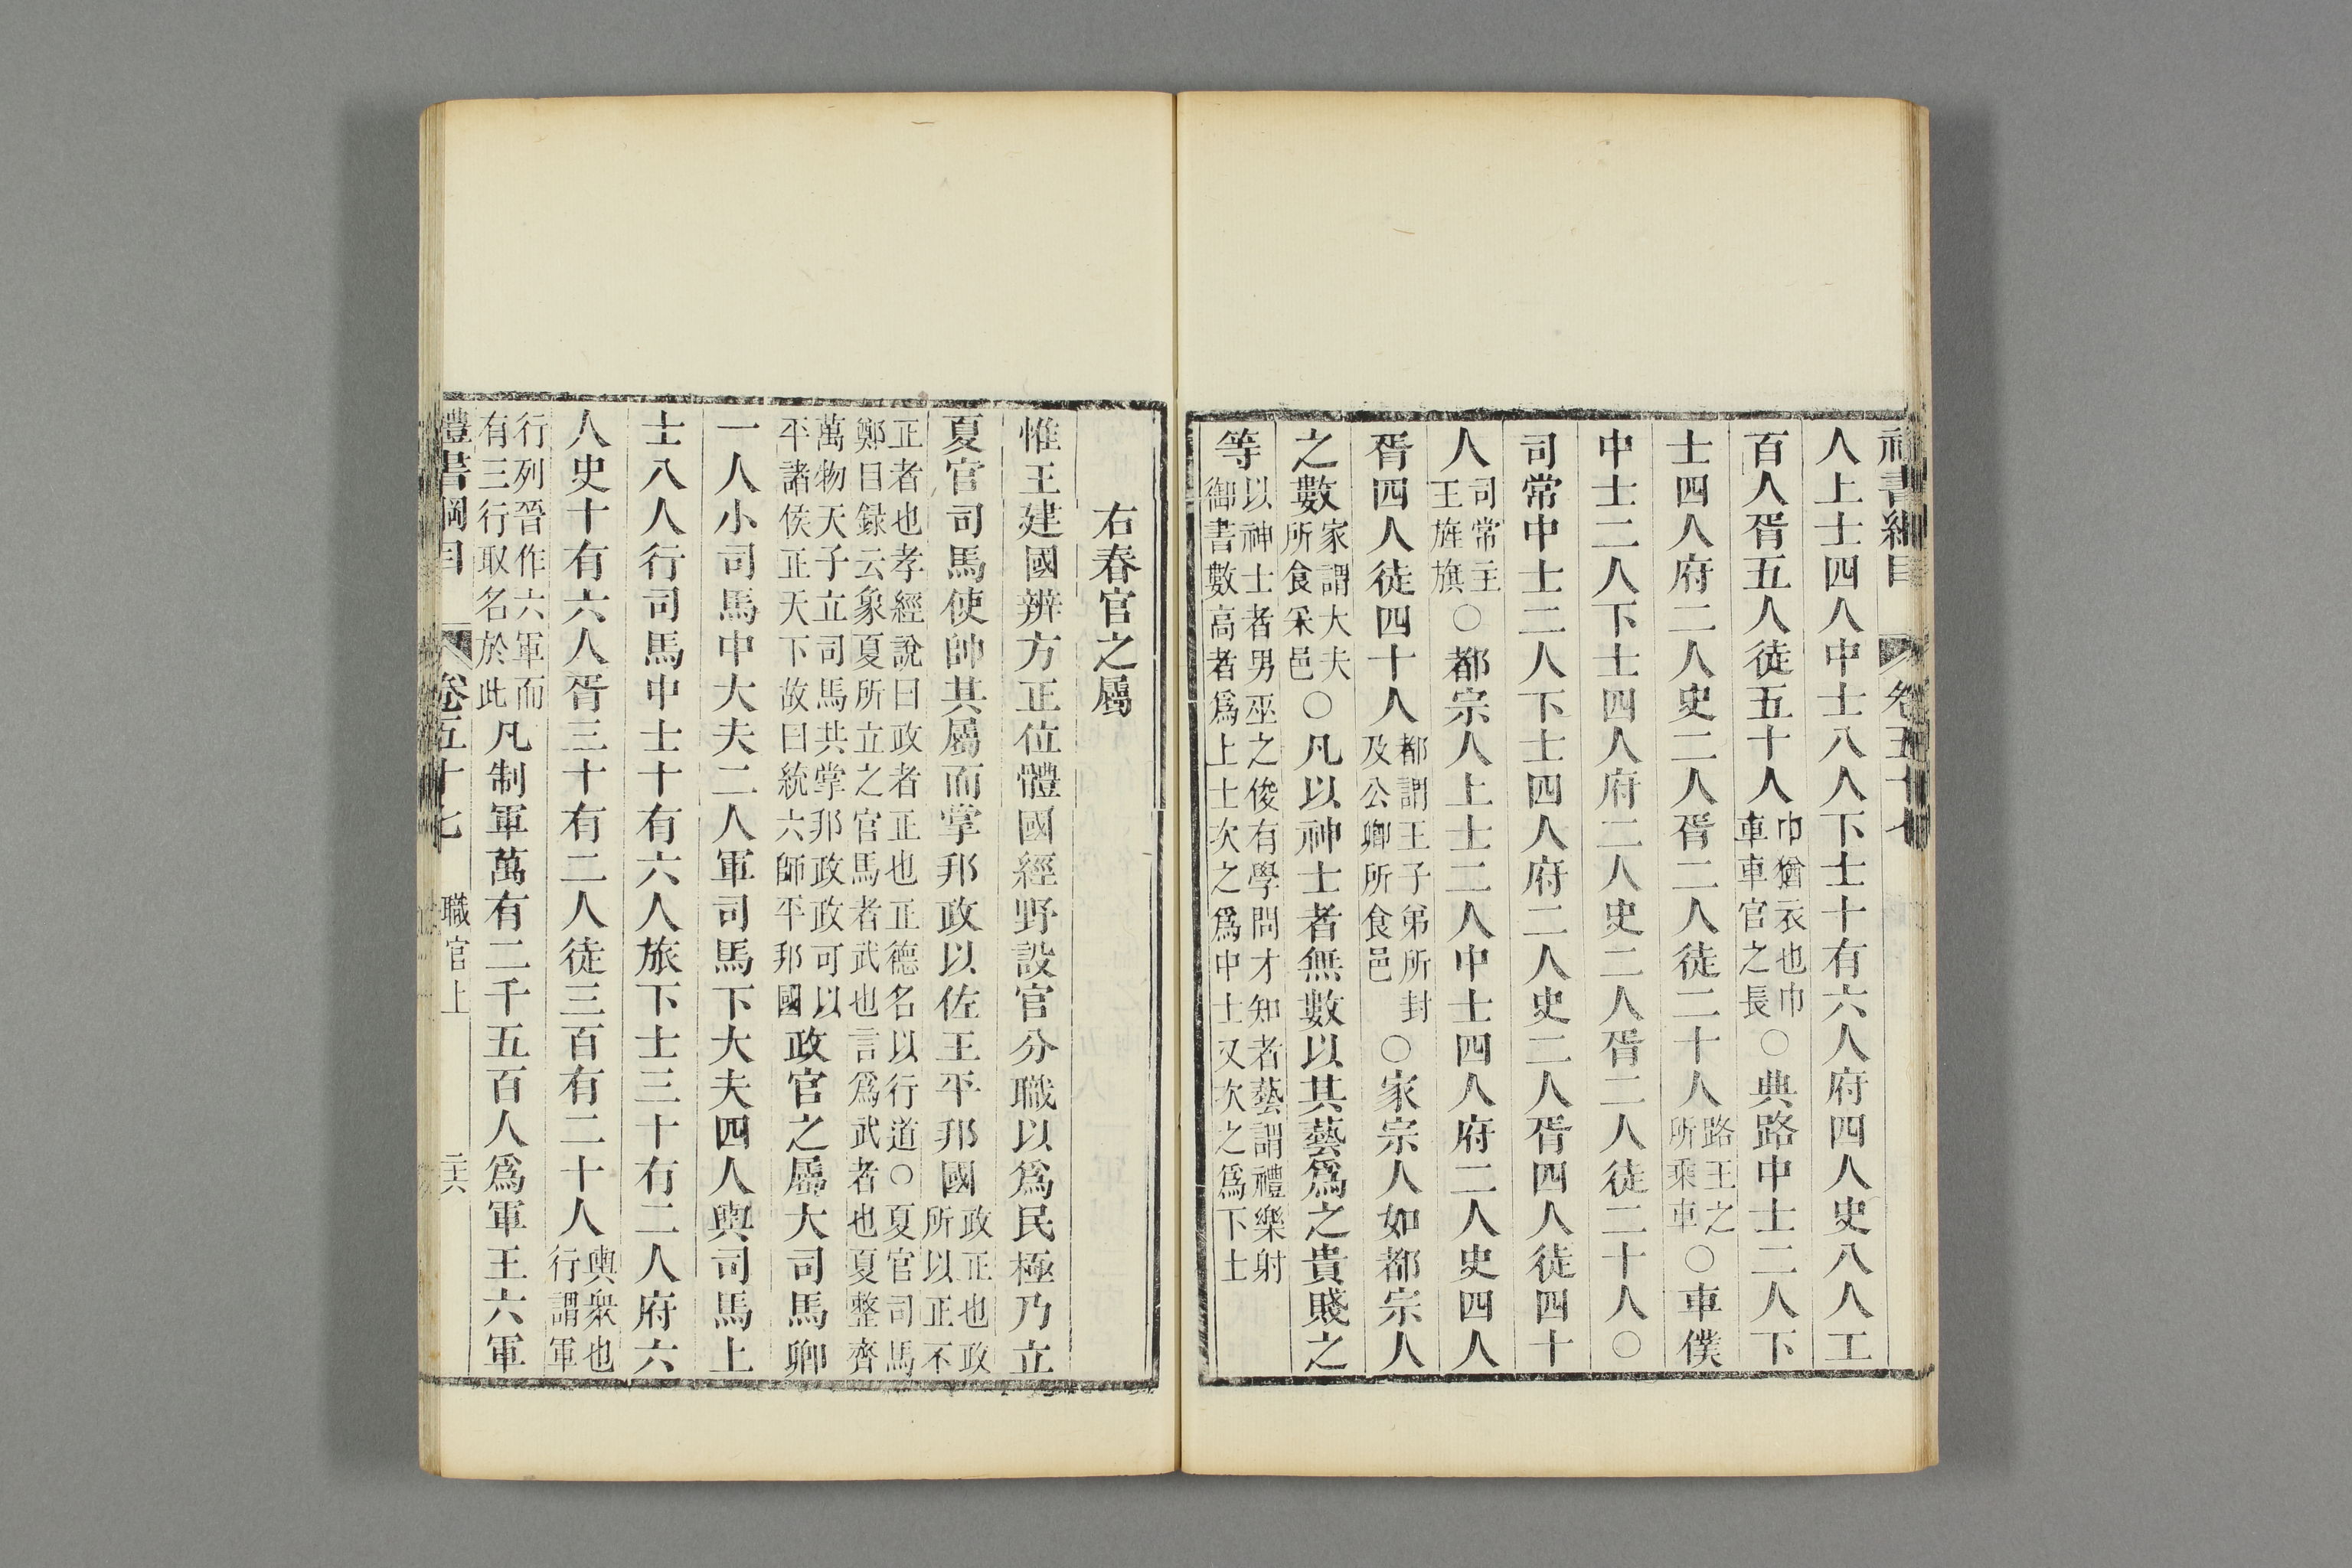 禮書綱目 卷五十七
人上士四人中士八人下士十有六人府四人史八人工
百人胥五人徒五十人巾猶衣也巾車車官之長○典路中士二人下
士四人府二人史二人胥二人徒二十人路王之所乘車○車僕
中士二人下士四人府二人史二人胥二人徒二十人○
司常中士二人下士四人府二人史二人胥四人徒四十
人司常主王旌旗○都宗人上士二人中士四人府二人史四人
胥四人徒四十人都謂王子弟所封及公卿所食邑○家宗人如都宗人
之數家謂大夫所食采邑○凡以神士者無數以其藝爲之貴賤之
等以神士者男巫之俊有學問才知者藝謂禮樂射御書數高者爲上士次之爲中士又次之爲下士
右春官之屬
惟王建國辨方正位體國經野設官分職以爲民極乃立
夏官司馬使帥其屬而掌邦政以佐王平邦國政正也政所以正不
正者也孝經說曰政者正也正德名以行道○夏官司馬鄭目録云象夏所立之官馬者武也言爲武者也夏整齊
萬物天子立司馬共掌邦政政可以平諸侯正天下故曰統六師平邦國政官之屬大司馬卿
一人小司馬中大夫二人軍司馬下大夫四人輿司馬上
士八人行司馬中士十有六人旅下士三十有二人府六
人史十有六人胥三十有二人徒三百有二十人輿衆也行謂軍
行列晉作六軍而有三行取名於此凡制軍萬有二千五百人爲軍王六軍
禮書綱目 卷五十七 職官上 二六